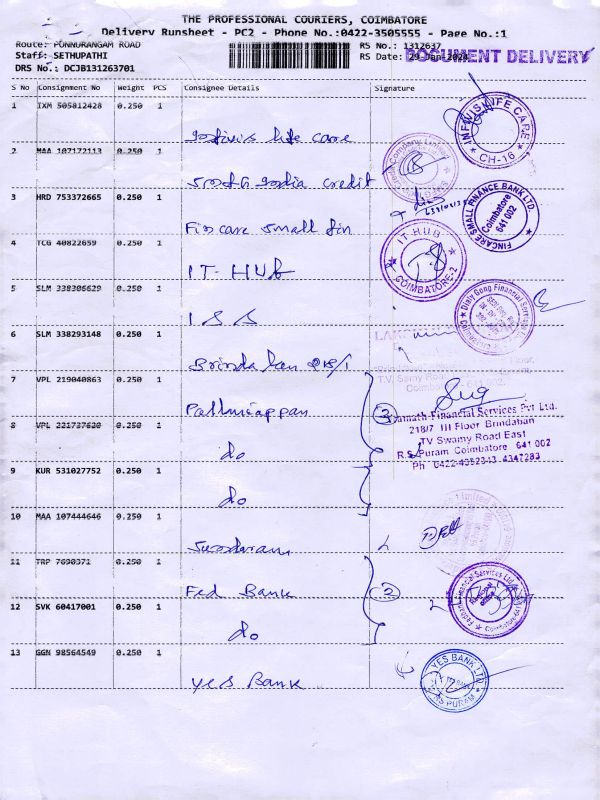 THE PROFESSIONAL COURIERS, COIMBATORE
Delivery Runsheet - PC2 - Phone No.:0422-3505555 - Page No.:1
Route: PONNURANGAM ROAD
RS No.: 1312637
Staff: SETHUPATHI
RS Date: 29-Jan-2024
DOCUMENT DELIVERY
DRS No.: DCJB131263701
S No Consignment No Weight PCS Consignee Details Signature
1 IXM 505812428 0.250 1
life care
INFIVIS LIFE CARE
CH-16
2 MAA 107172113 0.250 1
South India credit
3 HRD 753372665 0.250 1
Fincare small fin
FINCARE SMALL FINANCE BANK LTD
Coimbatore
641 002
4 TCG 40822659 0.250 1
IT-HUB
IT-HUB
COIMBATORE-2
5 SLM 338306629 0.250 1
ISS
6 SLM 338293148 0.250 1
7 VPL 219040863 0.250 1
Palaniappan
3
8 VPL 221737620 0.250 1
do
Financial Services Pvt Ltd.
218/7 III Floor Brindaban
TV Swamy Road East
R.S Puram Coimbatore 641 002
9 KUR 531027752 0.250 1
do
10 MAA 107444646 0.250 1
Sundaram
11 TRP 7690371 0.250 1
Fed Bank
2
12 SVK 60417001 0.250 1
do
13 GGN 98564549 0.250 1
Yes Bank
YES BANK LTD
RS PURAM